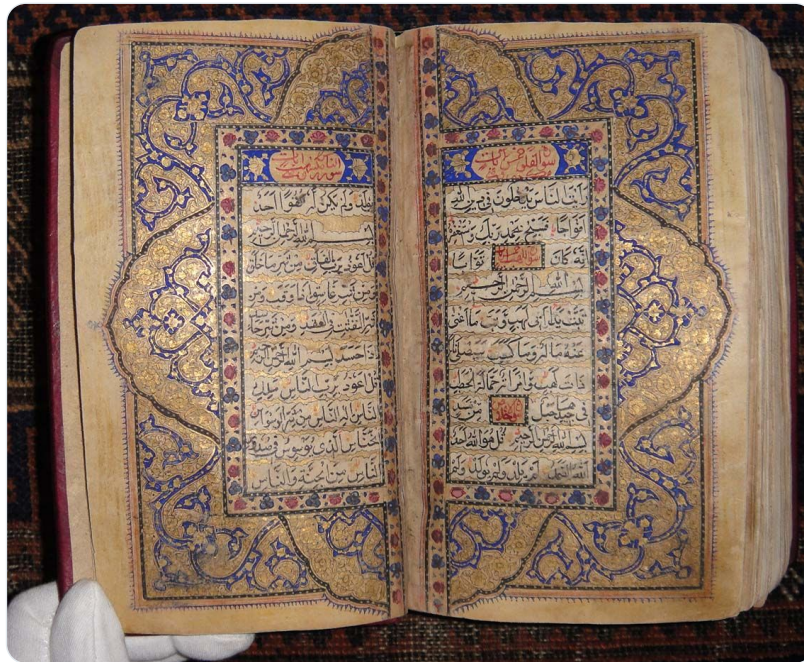 سورة الفلق خمس آيات
ورأيت الناس يدخلون في دين الله
أفواجا فسبح بحمد ربك واستغفره
إنه كان توابا
بسم الله الرحمن الرحيم
تبت يدا أبي لهب وتب ما أغنى
عنه ماله وما كسب سيصلى نارا
ذات لهب وامرأته حمالة الحطب
في جيدها حبل من مسد
بسم الله الرحمن الرحيم قل هو الله أحد
الله الصمد لم يلد ولم يولد ولم
سورة الناس
ولم يكن له كفوا أحد
بسم الله الرحمن الرحيم
قل أعوذ برب الفلق من شر ما خلق
ومن شر غاسق إذا وقب ومن
شر النفاثات في العقد ومن شر حاسد
إذا حسد بسم الله الرحمن الرحيم
قل أعوذ برب الناس ملك
الناس إله الناس من شر الوسواس
الخناس الذي يوسوس في صدور
الناس من الجنة والناس